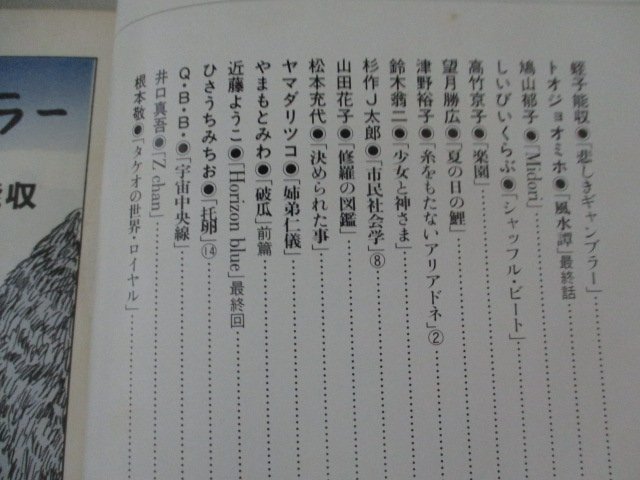 蛭子能収●「悲しきギャンブラー」
トオジョオミホ●「風水譚」最終話
鳩山郁子●「Midori」
しいびいくらぶ●「シャッフル・ビート」
高竹京子●「楽園」
望月勝広●「夏の日の鯉」
津野裕子●「糸をもたないアリアドネ」②
鈴木翁二●「少女と神さま」
杉作J太郎●「市民社会学」⑧
山田花子●「修羅の図鑑」
松本充代●「決められた事」
ヤマダリツコ●「姉弟仁儀」
やまもとみわ●「破瓜」前篇
近藤ようこ●「Horizon blue」最終回
ひさうちみちお●「托卵」⑭
Q・B・B・●「宇宙中央線」
井口真吾●「Z chan」
根本敬●「タケオの世界・ロイヤル」
ラー
収